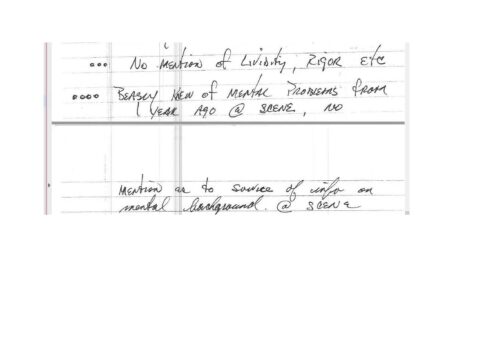 ooo No mention of Lividity, Rigor etc
oooo Beasly knew of mental problems from
1 year ago @ scene, no
mention as to source of info on
mental background. @ scene